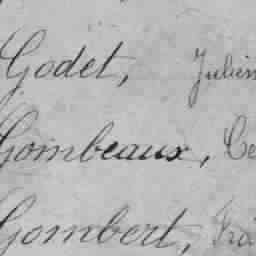 Godet, Julien
Gombeaux, Ce
Gombert, Fra